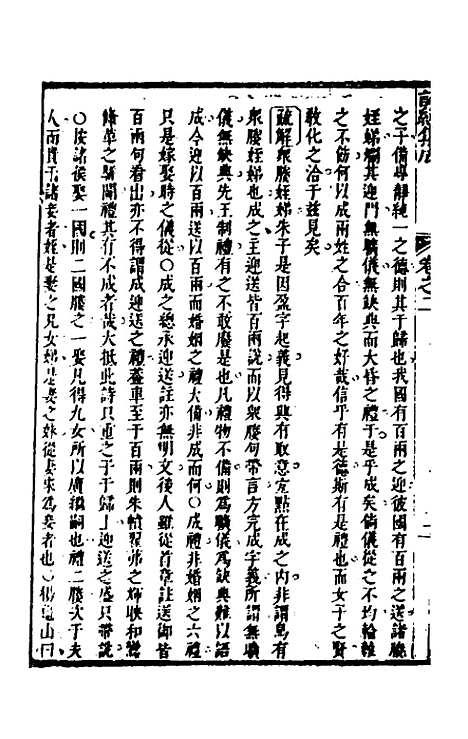 詩經集成
卷之二
之子備專靜純一之德則其于歸也我國有百兩之迎彼國有百兩之送諸媵
姪娣爛其迎門無曠儀無缺典而大昏之禮于是乎成矣倘儀從之不均輪雜
之不飭何以成兩姓之合百年之好哉信乎有是德斯有是禮也而女子之賢
教化之洽于茲見矣
疏解衆媵姪娣朱子是因盈字起義見得典有取意定點在成之內非謂鳥有
衆媵姪娣也成之主迎送皆百兩說而以衆媵句帶言方完成字義所謂無曠
儀無缺典先王制禮有之不敢廢是也凡禮物不備則爲曠儀爲缺典難以語
成今迎以百兩送以百兩而婚姻之禮大備非成而何○成禮非婚姻之六禮
只是嫁娶時之儀從○成之總承迎送註亦無明文後人雖從首章註送御皆
百兩句看出亦不得謂成迎送之禮蓋車至于百兩則朱幩翟茀之輝映和鸞
鞗革之 閑禮其有不成者哉大抵此詩只重之子于歸上迎送之盛只帶說
○按諸侯娶一國則二國媵之一娶凡得九女所以廣繼嗣也禮二媵次于夫
人而貴于諸妾者姪是妻之兄女娣是妻之妹從妻來爲妾者也○楊龜山曰